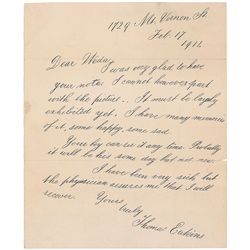 1729 Mt. Vernon St.
Feb. 17
1912
Dear Weda,
I was very glad to have
your note. I cannot however part
with the picture. It must be
exhibited yet. I have many memories
of it, some happy, some sad.
Your boy can see it any time. Probably
it will be his some day but not now.
I have been very sick but
the physician assures me that I will
recover.
Yours
truly
Thomas Eakins